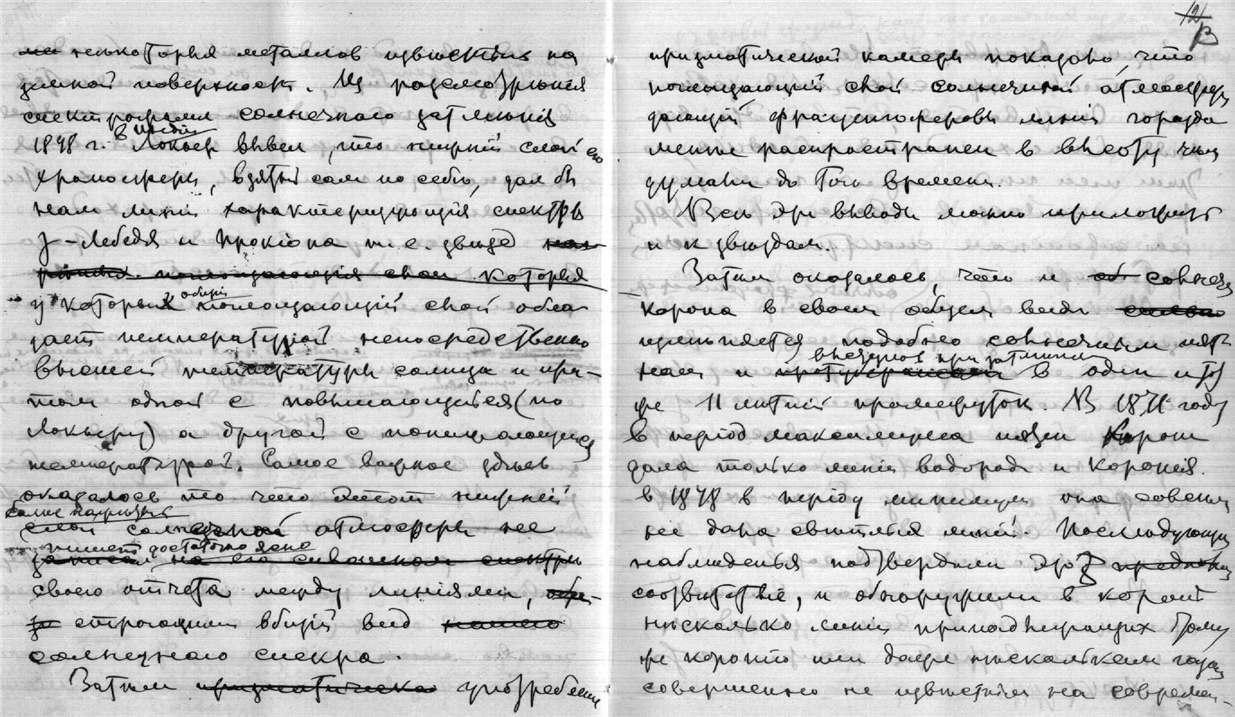 некоторыя металлов извѣстных на
земной поверхност. Из разсмотрѣнія
спектрограмм солнечнаго затмѣнія
1898 г. в Индіи Локьер вывел, что нижній слой ея
хромосферы, взятый сам по себѣ, дал бы
нам линіи характеризующія спектры
γ-Лебедя и Проціона т.е. звѣзд
поглощающія слои которыя
у которых общій поглощающій слой обла-
дает температурой непосредственно
высшей температуры солнца и при-
том одной с повышающейся (по
Локьеру) а другой с понижающейся
температурой. Самое важное здѣсь
оказалось то что этот нижний
самые наружныя
слой солнечной атмосферы не
пишет достаточно ясно
записал на его сивашком спектры
своего отчета между линіями,
строющими общій вид нашего
солнечнаго спекра.
Затѣм призматическа употребленіе
12
13
призматической камеры показало, что
поглощающій слой солнечной атмосферы
дающій фраунгоферовы линіи гораздо
менѣе распространен в высоту чѣм
думали до того времени.
Всѣ эти выводы можно приложить
и к звѣздам.
Затѣм оказалось, что и солнечн
корона в своем общем видѣ
измѣняется подобно солнечным пят-
нам и протуберансам в один и тот
же 11 лѣтній промежуток. В 1871 году
в період максимума пятен корона
дала только линіи водорода и коронія.
в 1878 в період минимума она совсѣм
не дала свѣтлых линій. Послѣдующія
наблюденья подтвердили это
соотвѣтствіе, и обнаружили в коронѣ
нѣсколько линій принадлежащих тому
же коронію или даже нѣскольким газам
совершенно не извѣстным на современ-